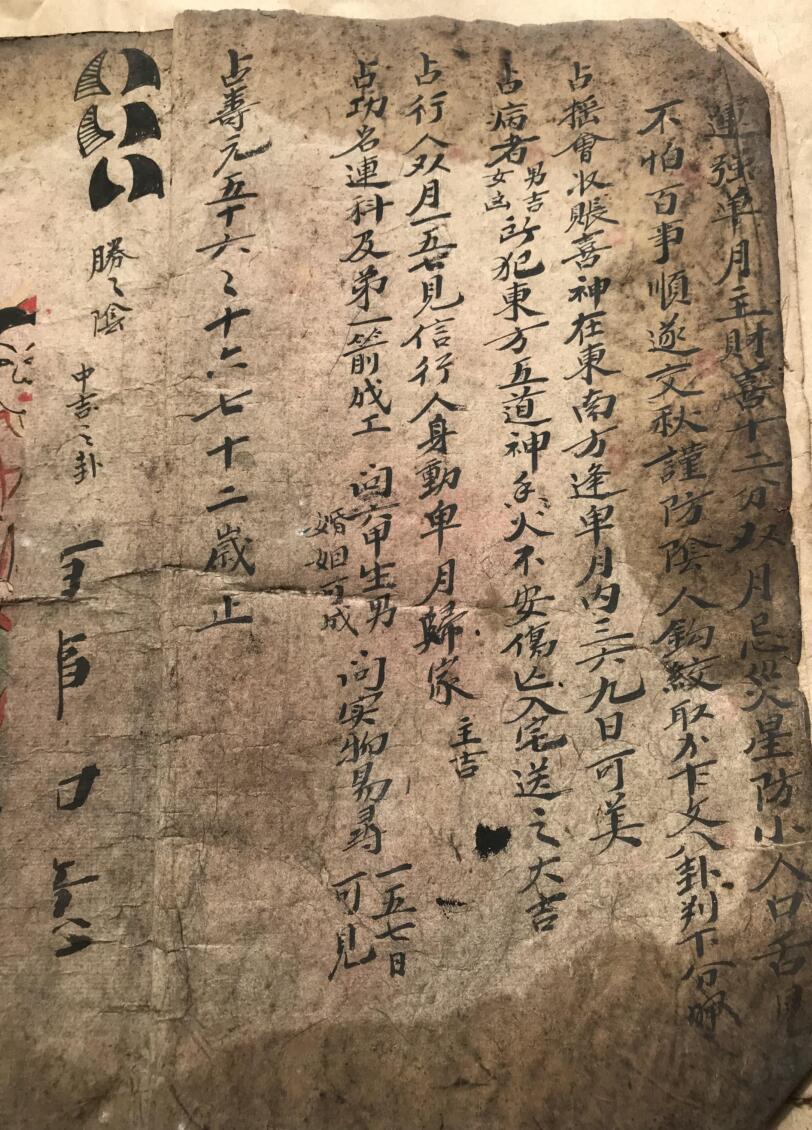 運強单月主財喜十二分双月忌災星防小人口舌
不怕百事順遂交秋謹防陰人鈎絞取㕕下文八卦判下分
占摇會收賬喜神在東南方逢单月内三六九日可美
占病者男吉女凶所犯東方五道神灶火不安傷亡入宅送之大吉
占行人双月一五七見信行人身動单月歸家 主吉
占功名連科及第一箭成工 問六甲生男 婚姻可成 問实物易尋 一五七日可見
占壽元五十六〻十六七十二歲止
勝〻陰 中吉之卦